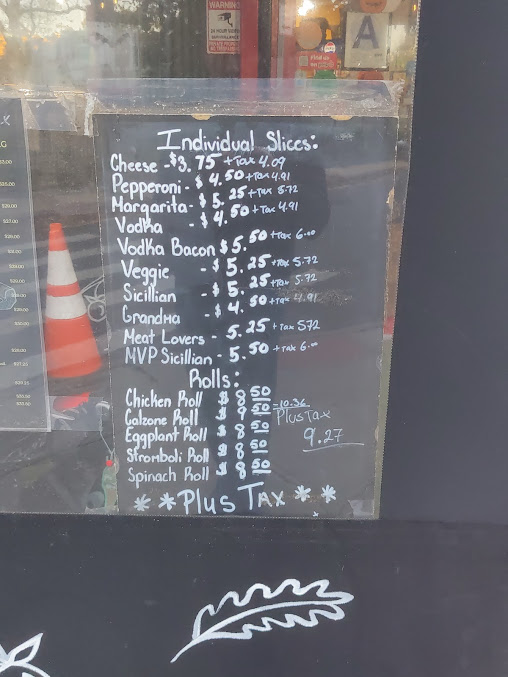 WARNING
24 HOUR VIDEO
SURVEILLANCE
A
Individual Slices:
Cheese - $3.75 + Tax 4.09
Pepperoni - $4.50 + Tax 4.91
Margarita - $5.25 + Tax 5.72
Vodka - $4.50 + Tax 4.91
Vodka Bacon $5.50 + Tax 6.00
Veggie - $5.25 + Tax 5.72
Sicillian - $5.25 + Tax 5.72
Grandma - $4.50 + Tax 4.91
Meat Lovers - 5.25 + Tax 572
MVP Sicillian - 5.50 + Tax 6.00
Rolls:
Chicken Roll $8 50
Calzone Roll $9 50 -10.36
Plus Tax
Eggplant Roll $8 50
9.27
Stromboli Roll $8 50
Spinach Roll $8 50
* * Plus Tax * *